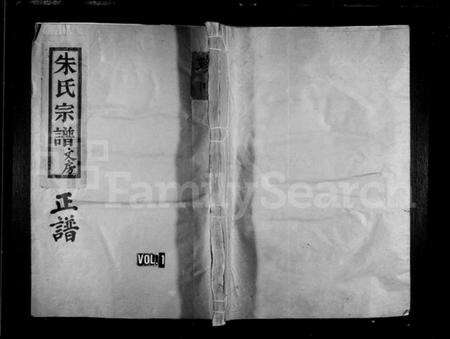 朱氏宗譜 文房
正譜
VOL. 1
FamilySearch